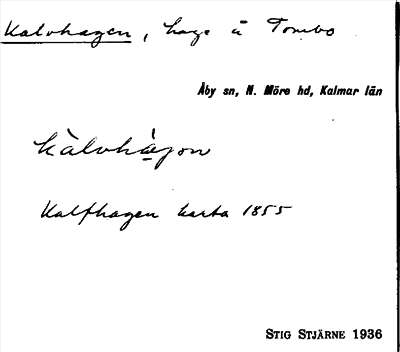 Kalvhagen, hage å Tombo
Åby sn, N. Möre hd, Kalmar län
kàlvhàgɒn
Kalfhagen karta 1855
STIG STJÄRNE 1936